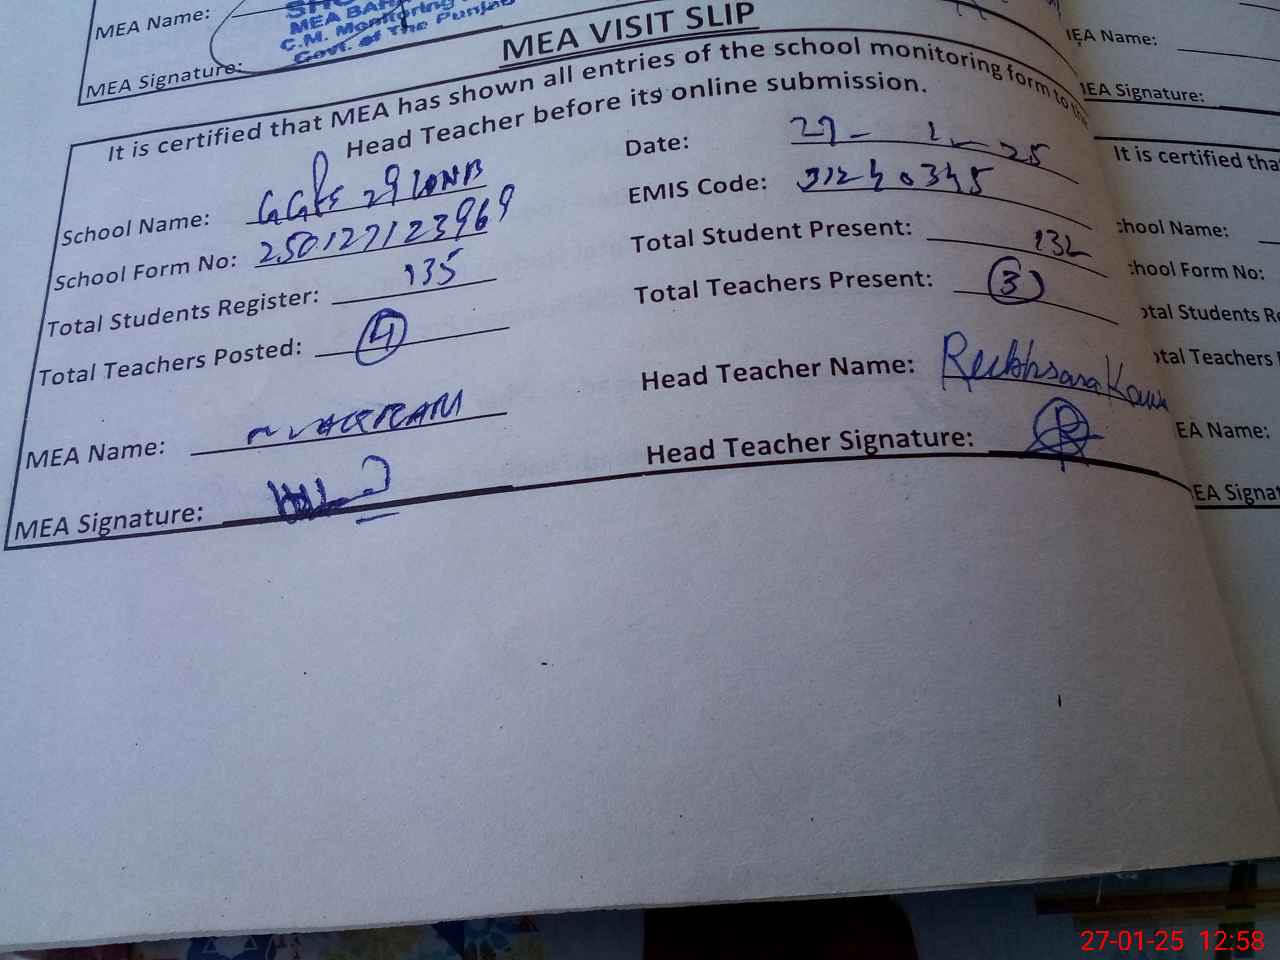 MEA Name:
MEA BAH
C.M. Monitoring
Govt. of The Punjab
MEA Signature:
MEA VISIT SLIP
It is certified that MEA has shown all entries of the school monitoring form to the
Head Teacher before its online submission.
School Name: GGPS 29
Date: 27-1-25
School Form No: 250127123969
EMIS Code: 31240345
Total Students Register: 135
Total Student Present: 132
Total Teachers Posted: 4
Total Teachers Present: 3
MEA Name:
Head Teacher Name: Rukhsana
MEA Signature:
Head Teacher Signature:
MEA Name:
MEA Signature:
It is certified tha
chool Name:
chool Form No:
otal Students Re
otal Teachers
EA Name:
EA Signat
27-01-25 12:58